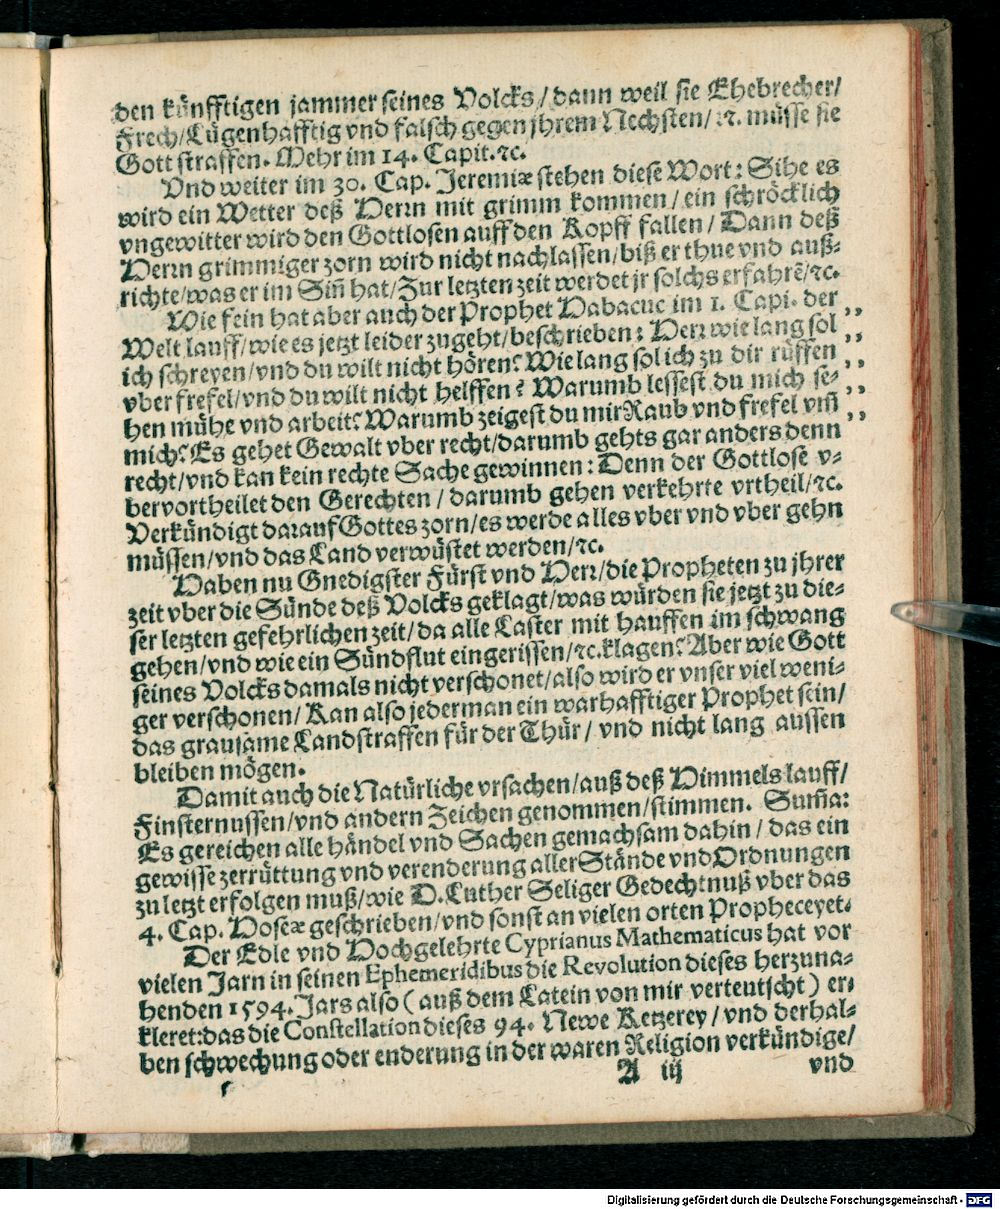 den künfftigen jammer seines Volcks/dann weil sie Ehebrecher/
Frech/Lügenhafftig vnd falsch gegen jhrem Nechsten/ꝛc. müsse sie
Gott straffen. Mehr im 14. Capit.ꝛc.
Vnd weiter im 30. Cap. Jeremiæ stehen diese Wort: Sihe es
wird ein Wetter deß Herrn mit grimm kommen/ein schröcklich
vngewitter wird den Gottlosen auff den Kopff fallen/Dann deß
Herrn grimmiger zorn wird nicht nachlassen/biß er thue vnd auß-
richte/was er im Siñ hat/Zur letzten zeit werdet jr solchs erfahrẽ/ꝛc.
Wie fein hat aber auch der Prophet Habacuc im 1. Capi. der ,,
Welt lauff/wie es jetzt leider zugeht/beschrieben: Herr wie lang sol ,,
ich schreyen/vnd du wilt nicht hören? Wie lang sol ich zu dir rüffen ,,
vber frefel/vnd du wilt nicht helffen? Warumb lessest du mich se- ,,
hen mühe vnd arbeit? Warumb zeigest du mir Raub vnd frefel vm̃ ,,
mich? Es gehet Gewalt vber recht/darumb gehts gar anders denn
recht/vnd kan kein rechte Sache gewinnen: Denn der Gottlose v-
bervortheilet den Gerechten/darumb gehen verkehrte vrtheil/ꝛc.
Verkündigt darauf Gottes zorn/es werde alles vber vnd vber gehn
müssen/vnd das Land verwüstet werden/ꝛc.
Haben nu Gnedigster Fürst vnd Herr/die Propheten zu jhrer
zeit vber die Sünde deß Volcks geklagt/was würden sie jetzt zu die-
ser letzten gefehrlichen zeit/da alle Laster mit hauffen im schwang
gehen/vnd wie ein Sündflut eingerissen/ꝛc.klagen? Aber wie Gott
seines Volcks damals nicht verschonet/also wird er vnser viel weni-
ger verschonen/Kan also jederman ein warhafftiger Prophet sein/
das grausame Landstraffen für der Thür/vnd nicht lang aussen
bleiben mögen.
Damit auch die Natürliche vrsachen/auß deß Himmels lauff/
Finsternussen/vnd andern Zeichen genommen/stimmen. Sum̃a:
Es gereichen alle händel vnd Sachen gemachsam dahin/das ein
gewisse zerrüttung vnd verenderung aller Stände vnd Ordnungen
zu letzt erfolgen muß/wie D. Luther Seliger Gedechtnuß vber das
4. Cap. Hoseæ geschrieben/vnd sonst an vielen orten Propheceyet.
Der Edle vnd Hochgelehrte Cyprianus Mathematicus hat vor
vielen Jarn in seinen Ephemeridibus die Revolution dieses herzuna-
henden 1594. Jars also (auß dem Latein von mir verteutscht) er-
kleret:das die Constellation dieses 94. Newe Ketzerey/vnd derhal-
ben schwechung oder enderung in der waren Religion verkündige/
A iij vnd
Digitalisierung gefördert durch die Deutsche Forschungsgemeinschaft - DFG